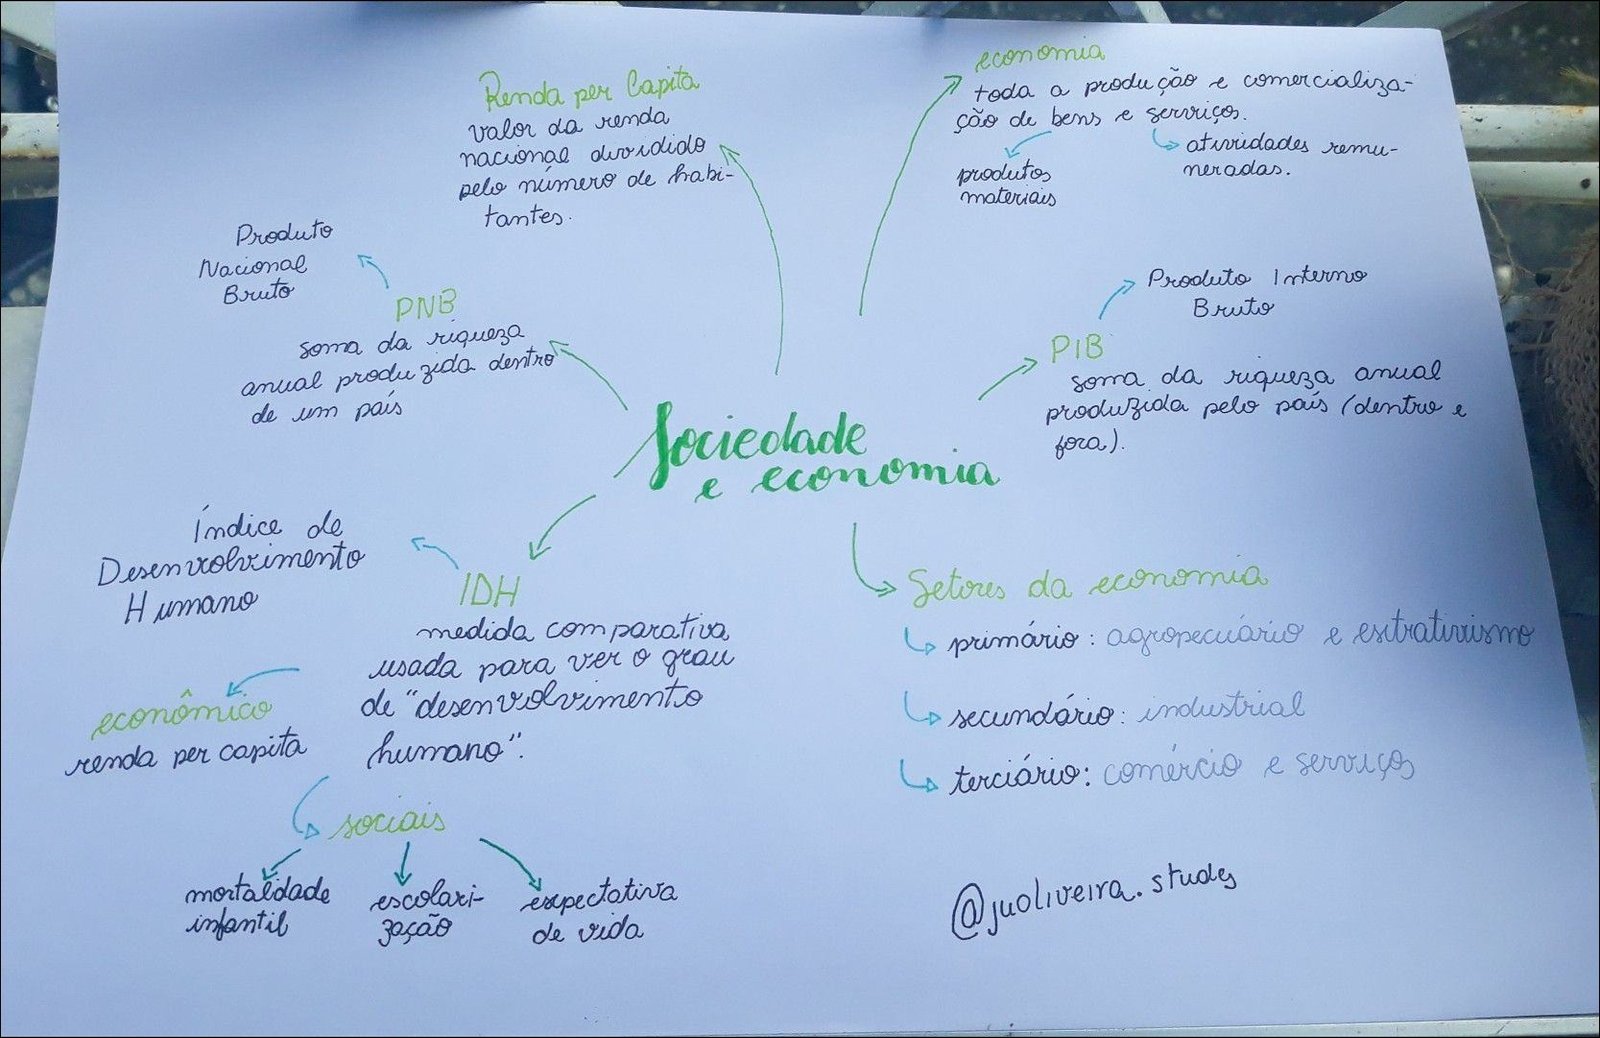 economia
toda a produção e comercializa-
ção de bens e serviços.
produtos
materiais
atividades remu-
neradas.
Renda per Capita
valor da renda
nacional dividido
pelo número de habi-
tantes.
Produto
Nacional
Bruto
PNB
soma da riqueza
anual produzida dentro
de um país
Produto Interno
Bruto
PIB
soma da riqueza anual
produzida pelo país (dentro e
fora).
Sociedade
e economia
Índice de
Desenvolvimento
Humano
IDH
medida comparativa
usada para ver o grau
de "desenvolvimento
humano".
econômico
renda per capita
sociais
mortalidade
infantil
escolari-
zação
expectativa
de vida
Setores da economia
primário: agropecuário e extrativismo
secundário: industrial
terciário: comércio e serviços
@juoliveira.studes